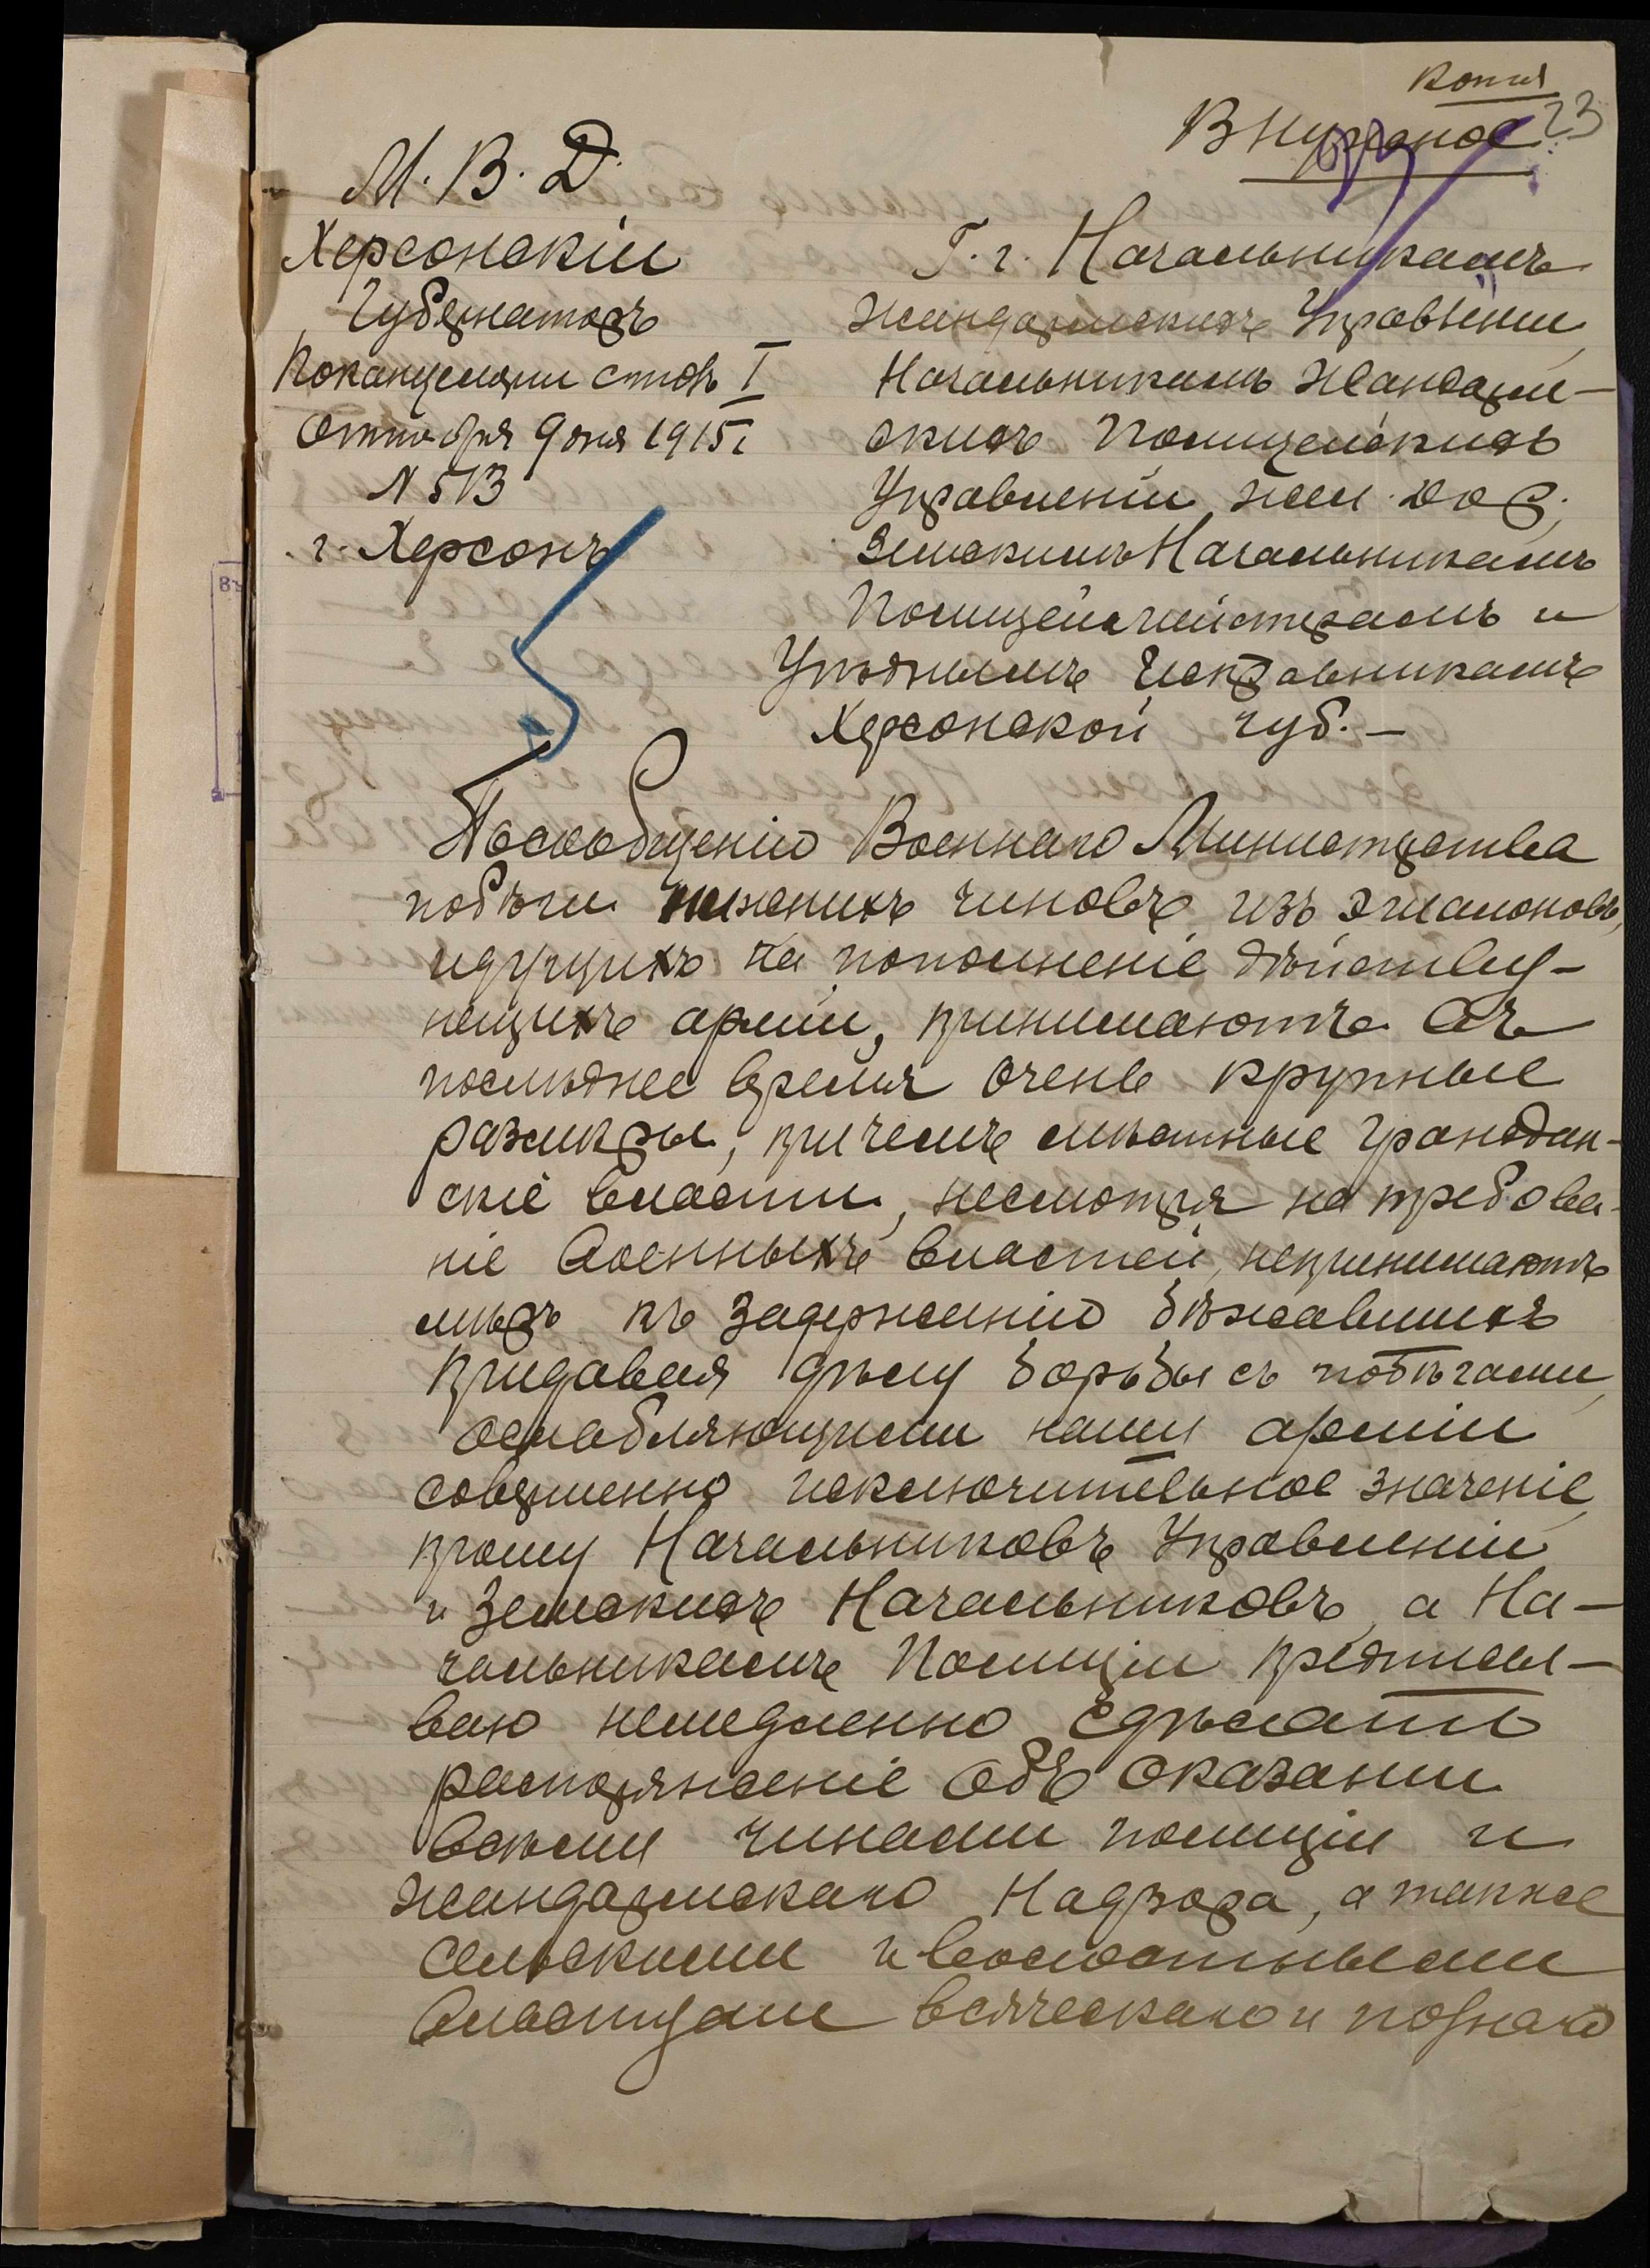 Копія
В нужное
23
М. В. Д.
Херсонскій
Губернаторъ
По канцеляріи столъ I
Октября 9 дня 1915 г
N 513
г. Херсонъ
Г. г. Начальникамъ
Жандармскихъ Управленій,
Начальникамъ Жандарм-
скихъ Полицейскихъ
Управленій жел. дор.,
Земскимъ Начальникамъ
Полицеймейстерамъ и
Уѣзднымъ Исправникамъ
Херсонской губ. –
По сообщенію Военнаго Министерства
побѣги нижнихъ чиновъ изъ эшалоновъ,
идущихъ на пополненіе дѣйству-
ющихъ армій, принимаютъ въ
послѣднее время очень крупные
размѣры, причемъ мѣстные граждан-
скіе власти, несмотря на требова-
ніе военныхъ властей, непринимаютъ
мѣръ къ задержанію бѣжавшихъ
Придавая дѣлу борьбы съ побѣгами,
ослабляющими наши арміи
совершенно исключительное значеніе,
прошу Начальниковъ Управленій
и Земскихъ Начальниковъ, а На-
чальникамъ Полиціи предписы-
ваю немедленно сдѣлать
распоряженіе объ оказаніи
всѣми чинами полиціи и
жандармскаго Надзора, а также
сельскими и волостными
властями всяческаго и полнаго